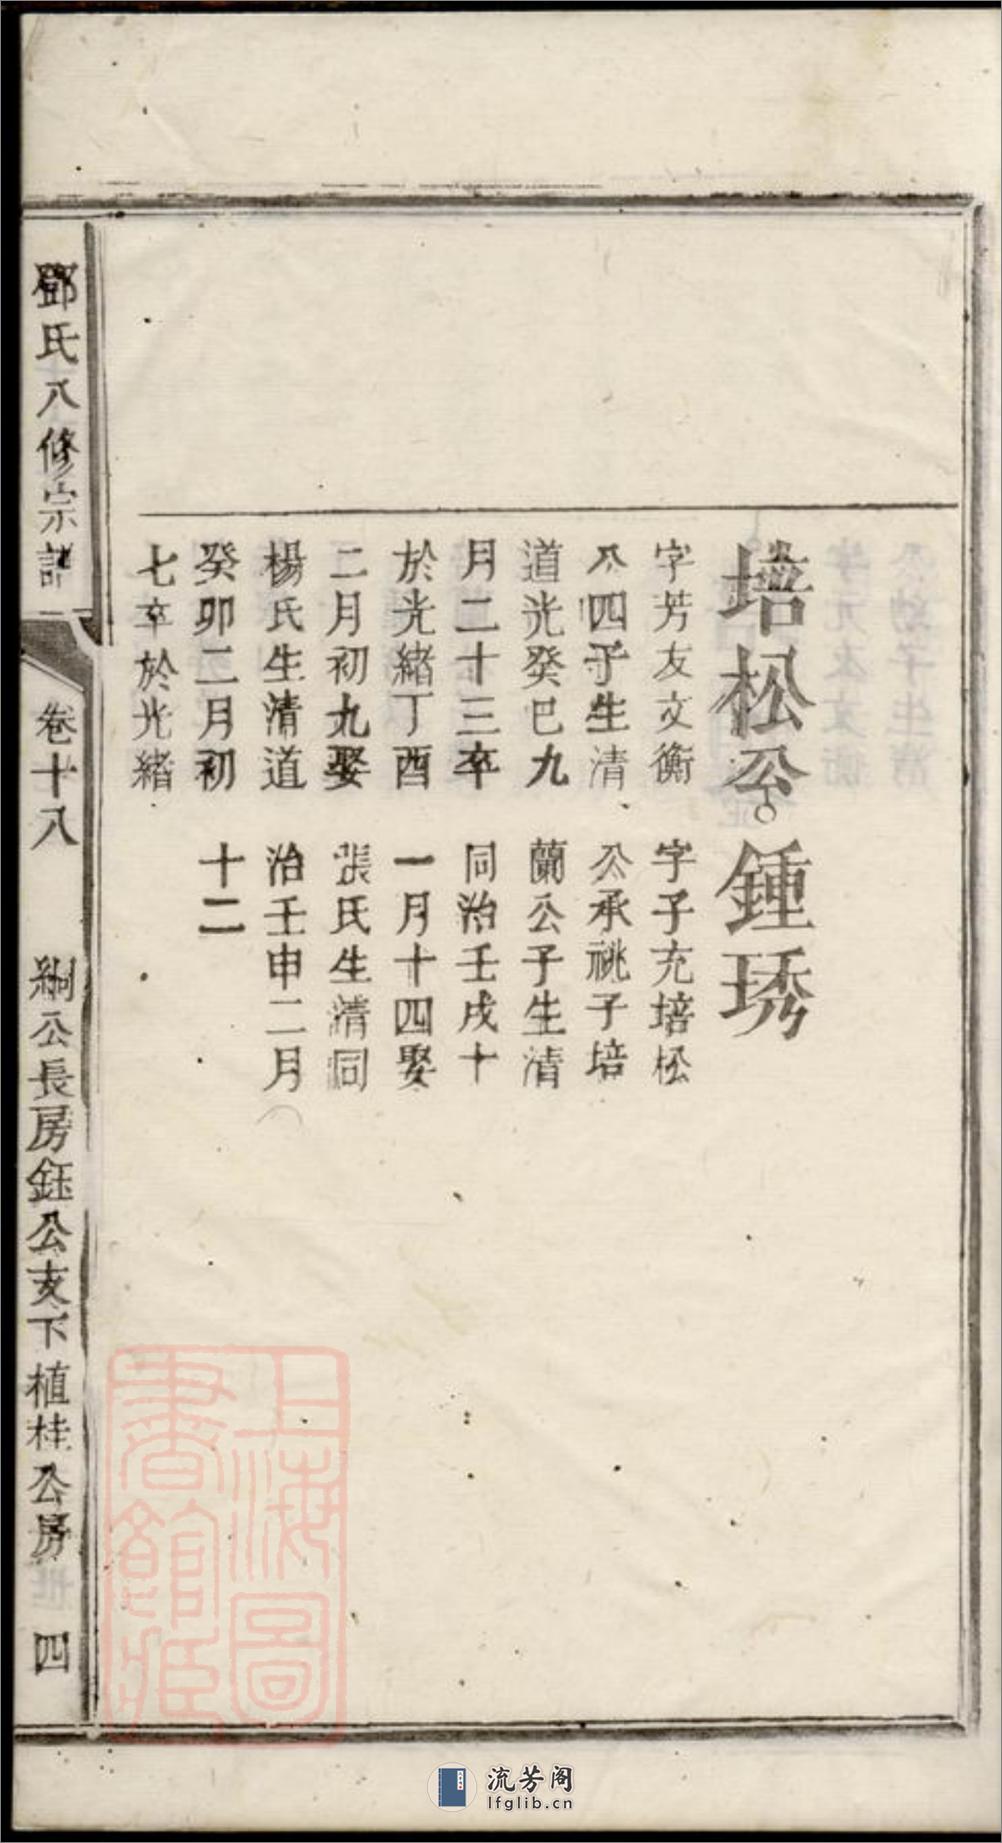 培松公
字芳友文衡
公四子生清
道光癸巳九
月二十三卒
於光緒丁酉
二月初九娶
楊氏生清道
癸卯二月初
七卒於光緒
鍾琇
字子充培松
公承祧子培
蘭公子生清
同治壬戌十
一月十四娶
張氏生清同
治壬申二月
十二
鄧氏八修宗譜
卷十八
綗公長房鈺公支下植桂公房
四
上海圖
書館藏
流芳阁
lfglib.cn